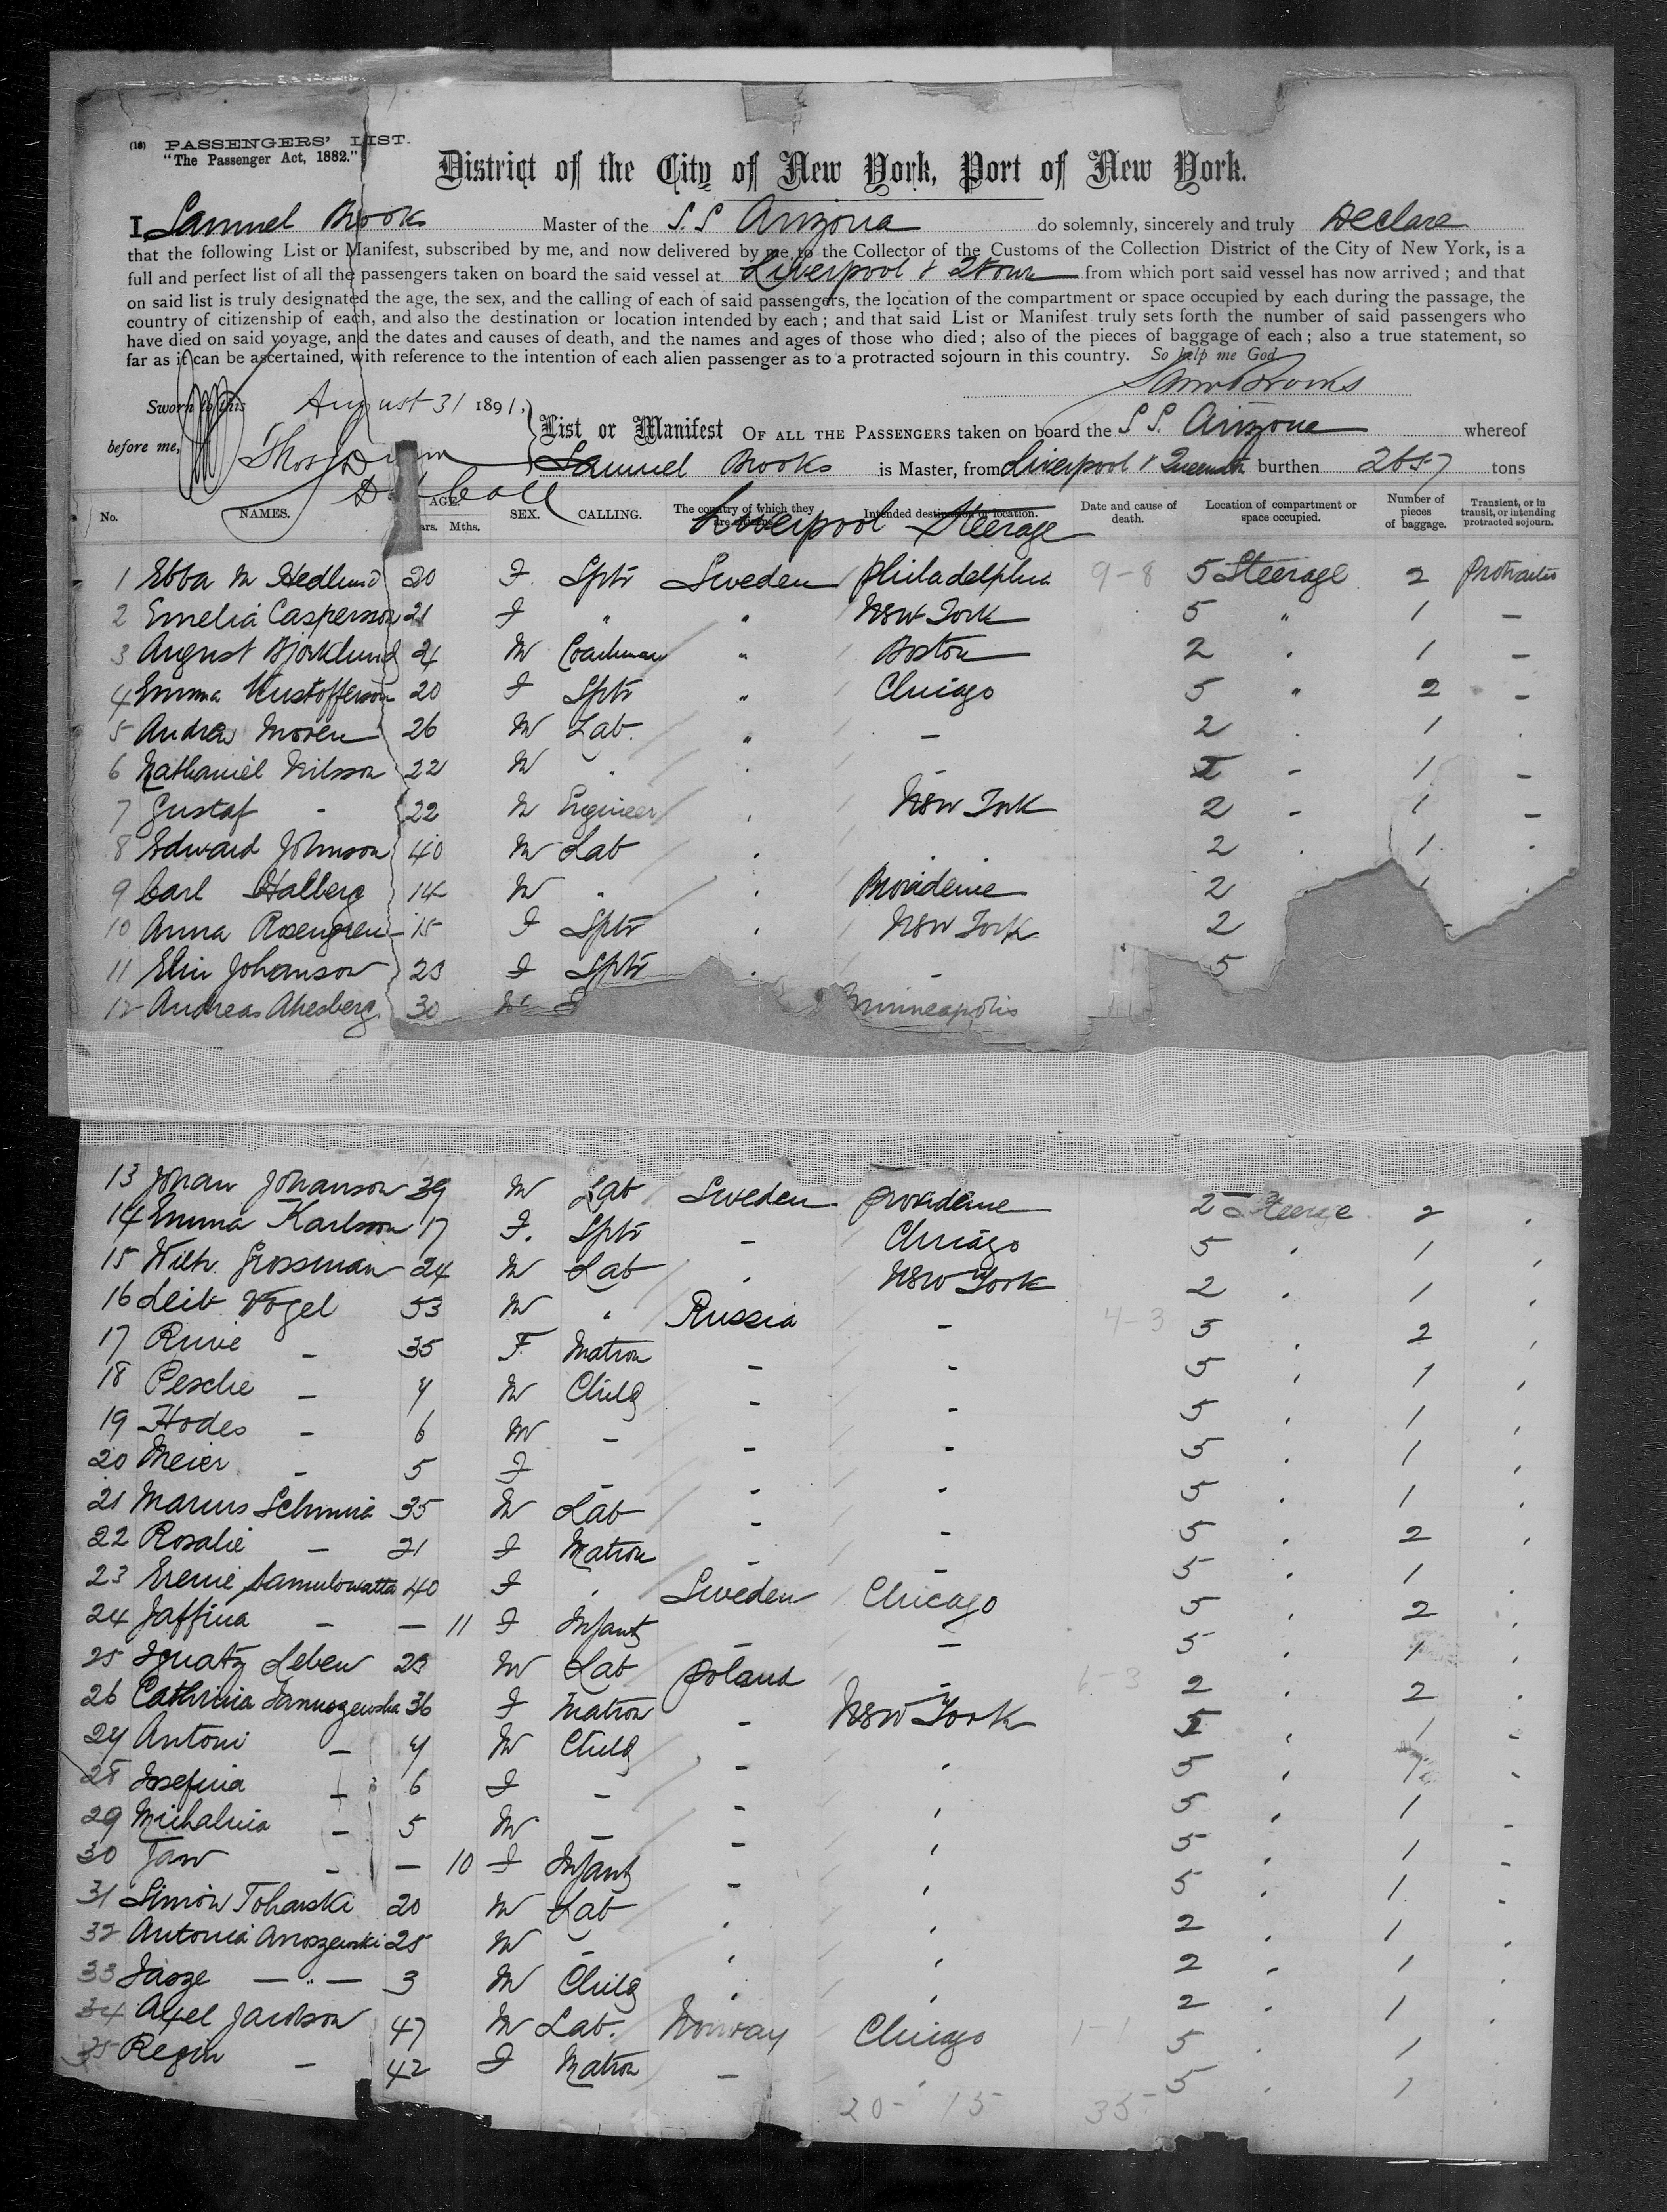 (18) PASSENGERS' LIST.
"The Passenger Act, 1882."
District of the City of New York, Port of New York.
I Samuel Brooks Master of the S.S Arizona do solemnly, sincerely and truly Declare
that the following List or Manifest, subscribed by me, and now delivered by me to the Collector of the Customs of the Collection District of the City of New York, is a
full and perfect list of all the passengers taken on board the said vessel at Liverpool & from which port said vessel has now arrived; and that
on said list is truly designated the age, the sex, and the calling of each of said passengers, the location of the compartment or space occupied by each during the passage, the
country of citizenship of each, and also the destination or location intended by each; and that said List or Manifest truly sets forth the number of said passengers who
have died on said voyage, and the dates and causes of death, and the names and ages of those who died; also of the pieces of baggage of each; also a true statement, so
far as it can be ascertained, with reference to the intention of each alien passenger as to a protracted sojourn in this country. So help me God.
Saml Brooks
Sworn to this August 31 1891,
before me,
List or Manifest OF ALL THE PASSENGERS taken on board the S S. Arizona whereof
Samuel Brooks is Master, from Liverpool & burthen 2657 tons
No. NAMES. AGE. Mths. SEX. CALLING. The country of which they are Intended destination or location. Date and cause of death. Location of compartment or space occupied. Number of pieces of baggage. Transient, or in transit, or intending protracted sojourn.
Liverpool Steerage
1 Ebba M Hedlund 20 F Sptr Sweden Philadelphia 9-8 5 Steerage 2
2 Emelia Casperson 21 F " " New York 5 " 1 -
3 August Bjorklund 24 M Coachman " Boston 2 " 1 -
4 Emma Kustofferson 20 F Sptr " Chicago 5 " 2 -
5 Andrew Moren 26 M Lab. " - 2 1
6 Nathaniel Nilsson 22 M " - 1 -
7 Gustaf - 22 M Engineer New York 2 - 1 -
8 Edward Johnson 40 M Lab 2 1
9 Carl Halberg 14 M " Providence 2
10 Anna Rosengren 15 F Sptr New York 2
11 Elin Johanson 23 F Sptr - 5
12 Andreas 30 M Minneapolis
13 Johan Johanson 39 M Lab Sweden Providence 2 Steerage 2
14 Emma Karlsson 17 F. Sptr - Chicago 5 1
15 Wilh. Grossman 24 M Lab New York 2 1
16 Leib Vogel 53 M " Russia - 4-3 5 2
17 - 35 F. Matron - - 5 1
18 Pesche - 4 M Child - - 5 1
19 Hodes - 6 M - - - 5 1
20 Meier - 5 F - - - 5 1
21 Marcus 35 M Lab - - 5 2
22 Rosalie - 21 F Matron - - 5 1
23 40 F Sweden Chicago 5 2
24 Jaffina - - 11 F Infant - - 5 1
25 Ignatz Leben 23 M Lab Poland - 6-3 2 2
26 Cathrina Januszewska 36 F Matron - New York 5 1
27 Antoni - 4 M Child - 5 1
28 Josefina 6 F - - 5 1
29 Michalina - 5 M - - 5 1
30 - - 10 F Infant - 5 1
31 Simon Toharski 20 M Lab 2 1
32 Antonia 25 M - 2 1
33 — " — 3 M Child 2 1
34 Axel Jacobson 47 M Lab. Norway Chicago 1-1 5 1
35 - 42 F Matron - 5 1
20- 15 35